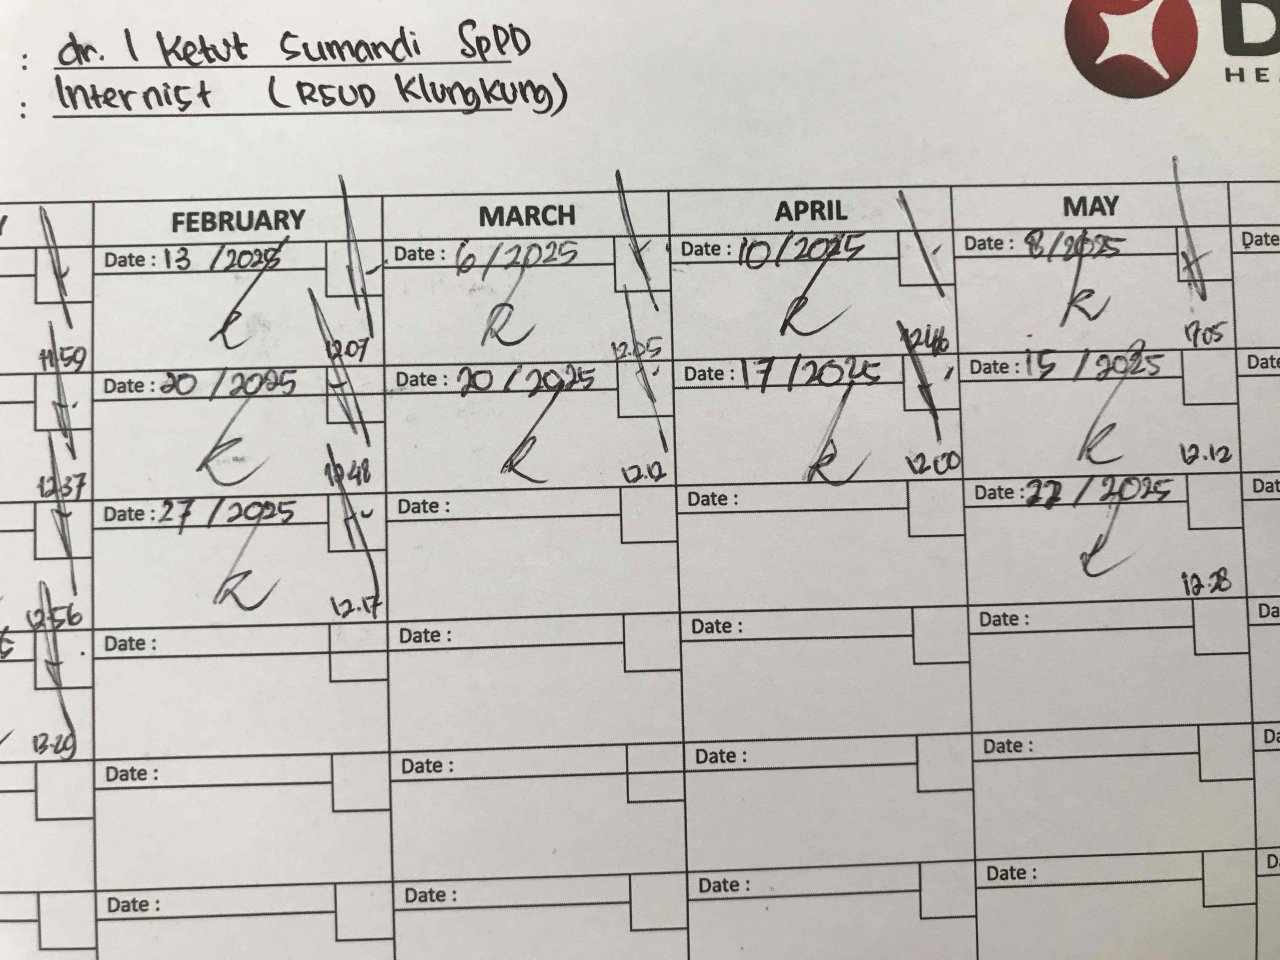 : dr. I Ketut Sumandi SpPD
: Internist (RSUD Klungkung)
D
HEA
Y FEBRUARY MARCH APRIL MAY
Date : 13 /2025 Date : 6/2025 Date : 10/2025 Date : 8/2025 Date
11.59 12.07 12.05 12.46 17.05
Date : 20 /2025 Date : 20 /2025 Date : 17 /2025 Date : 15 /2025 Date
12.37 12.12 12.00 12.12
Date : 27 /2025 Date : Date : Date : 22 /2025 Dat
12.56 12.17 12.28
Date : Date : Date : Date : Da
13.29
Date : Date : Date : Date : Da
Date : Date : Date : Date : D